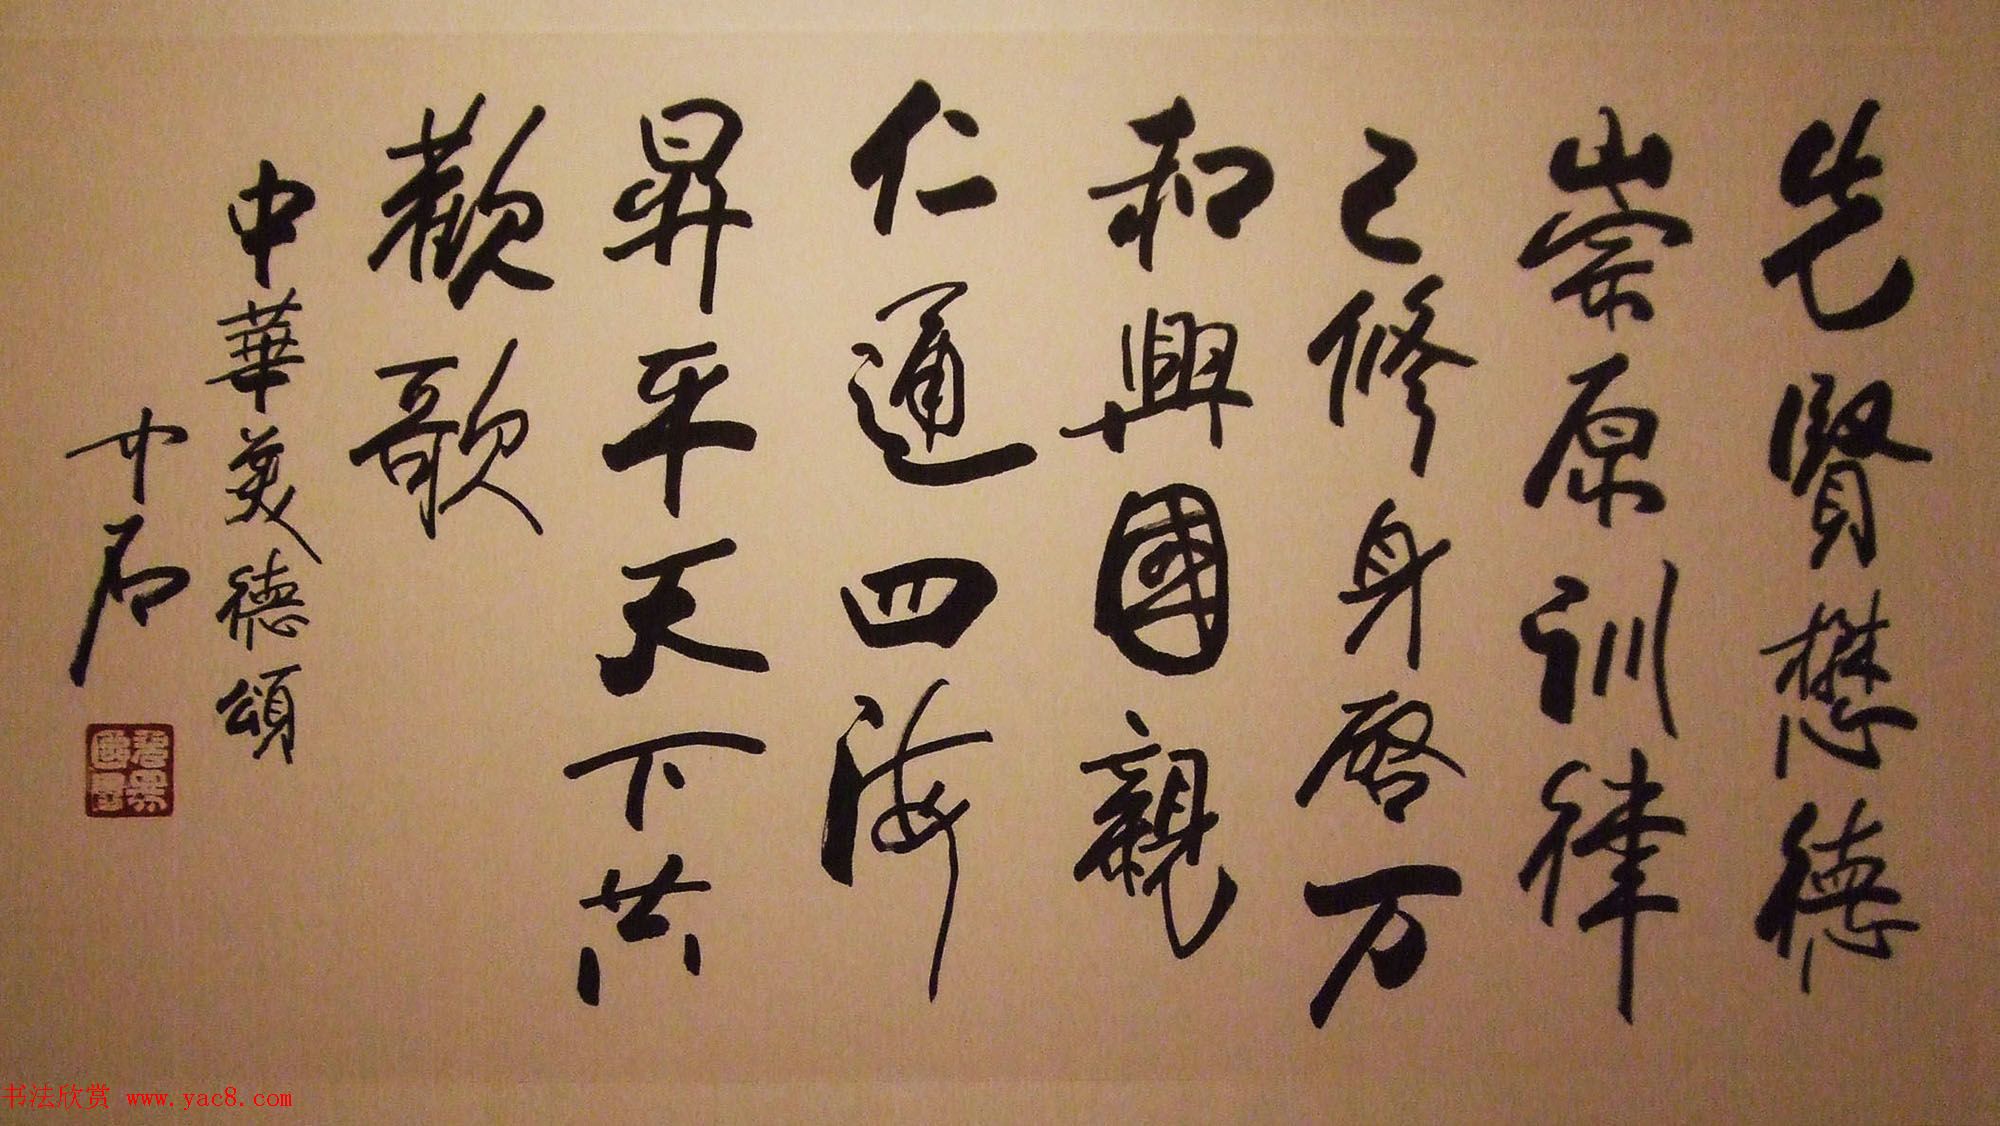 先賢懋德
崇原训律
己修身啓万
和興國親
仁通四海
昇平天下共
歡歌
中華美德頌
书法欣赏 www.yac8.com